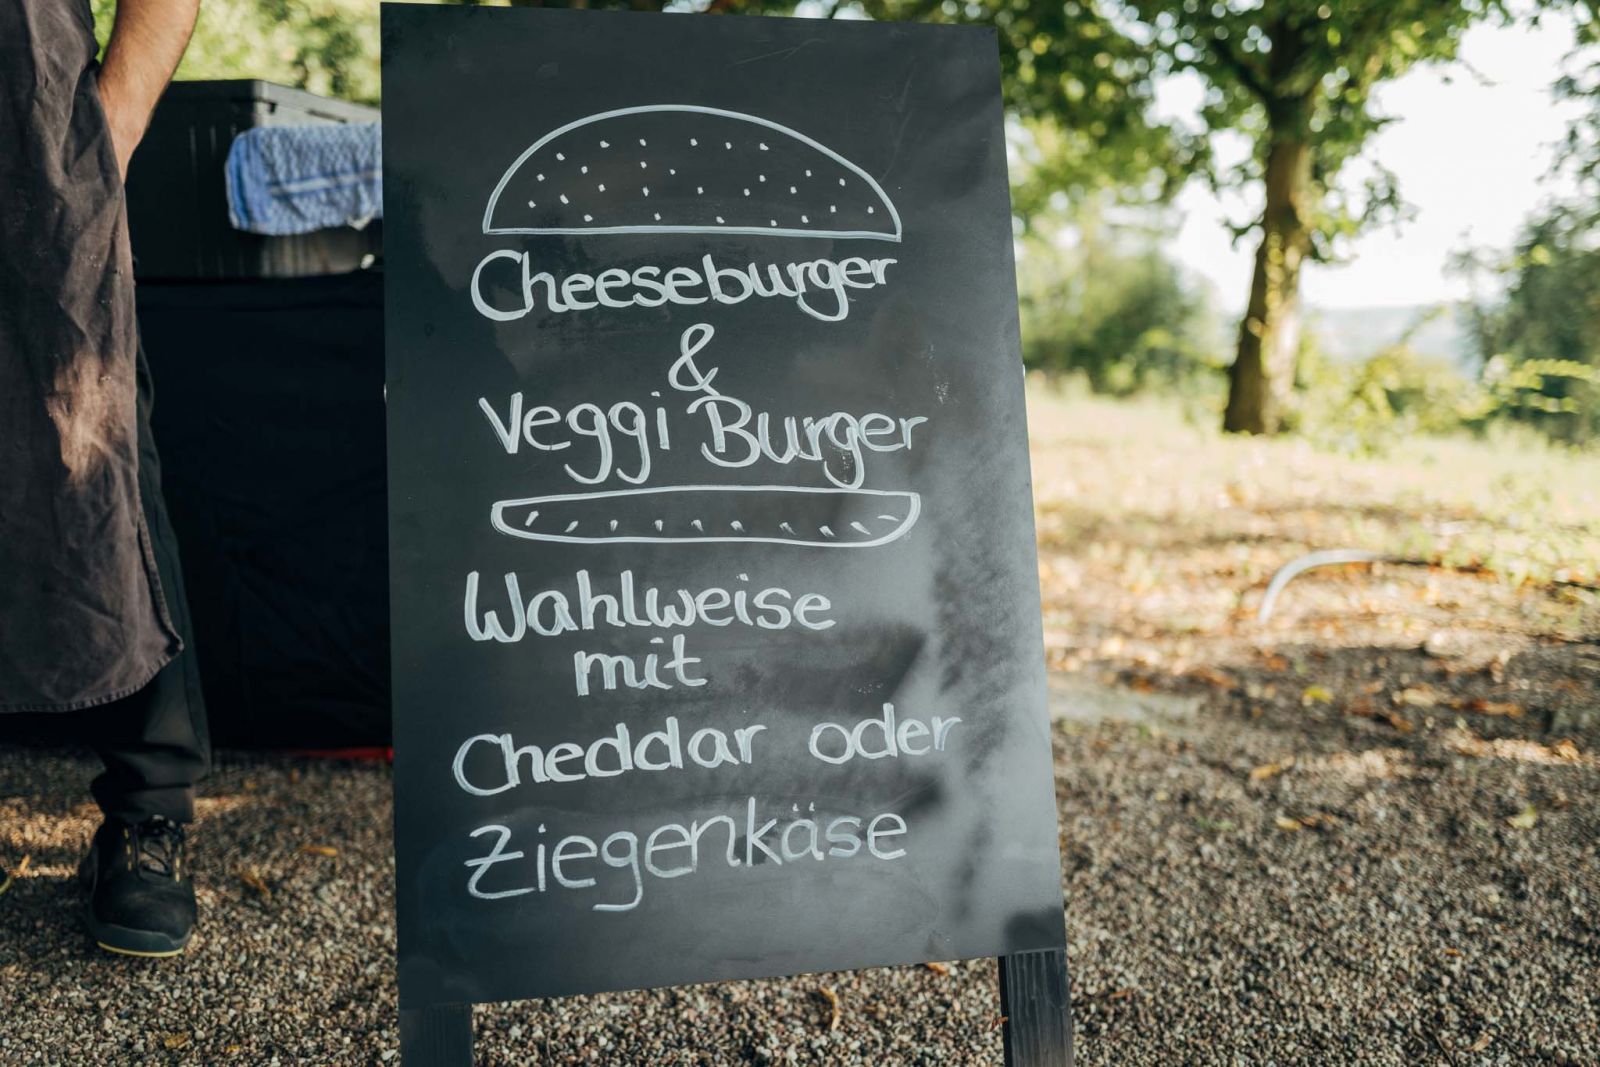 Cheeseburger
&
Veggi Burger
Wahlweise
mit
Cheddar oder
Ziegenkäse